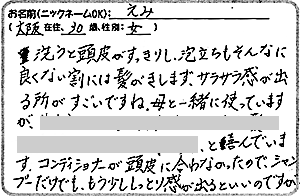 お名前(ニックネームOK): えみ
(大阪 在住、30歳、性別: 女 )
洗うと頭皮がすっきりし、泡立ちもそんなに
良くない割には髪がきします、サラサラ感が出
る所がすごいですね、母と一緒に使っています
が
、と喜んでいま
す、コンディショナーが頭皮に合わなかったので、シャン
プーだけでも、もう少ししっとり感が出るといいのですが